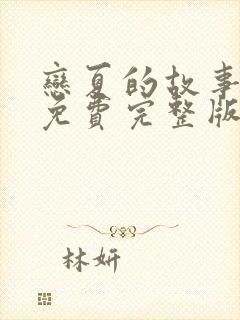 戀夏的故事
免費完整版
林妍